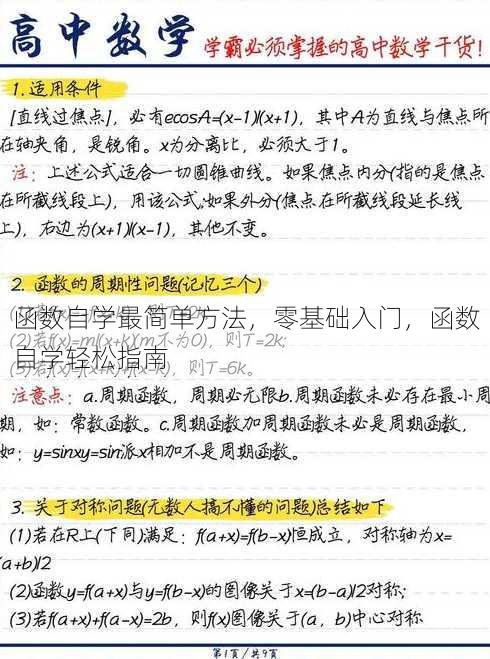 高中数学 学霸必须掌握的高中数学干货!
1.适用条件
[直线过焦点]，必有ecosA=(x-1)/(x+1)，其中A为直线与焦点所
在轴夹角，是锐角。x为分离比，必须大于1。
注：上述公式适合一切圆锥曲线。如果焦点内分(指的是焦点
在所截线段上)，用该公式;如果外分(焦点在所截线段延长线
上)，右边为(x+1)/(x-1)，其他不变。
2.函数的周期性问题(记忆三个)
函数自学最简单方法，零基础入门，函数
(2)若f(x)=m/(x+k)(m不为0)，则T=2k;
自学轻松指南
则T=6k。
注意点：a.周期函数，周期必无限b.周期函数未必存在最小周
期，如：常数函数。c.周期函数加周期函数未必是周期函数，
如：y=sinxy=sin派x相加不是周期函数。
3.关于对称问题(无数人搞不懂的问题)总结如下
(1)若在R上(下同)满足：f(a+x)=f(b-x)恒成立，对称轴为x=
(a+b)/2
(2)函数y=f(a+x)与y=f(b-x)的图像关于x=(b-a)/2对称;
(3)若f(a+x)+f(a-x)=2b，则f(x)图像关于(a，b)中心对称
第1页/共9页